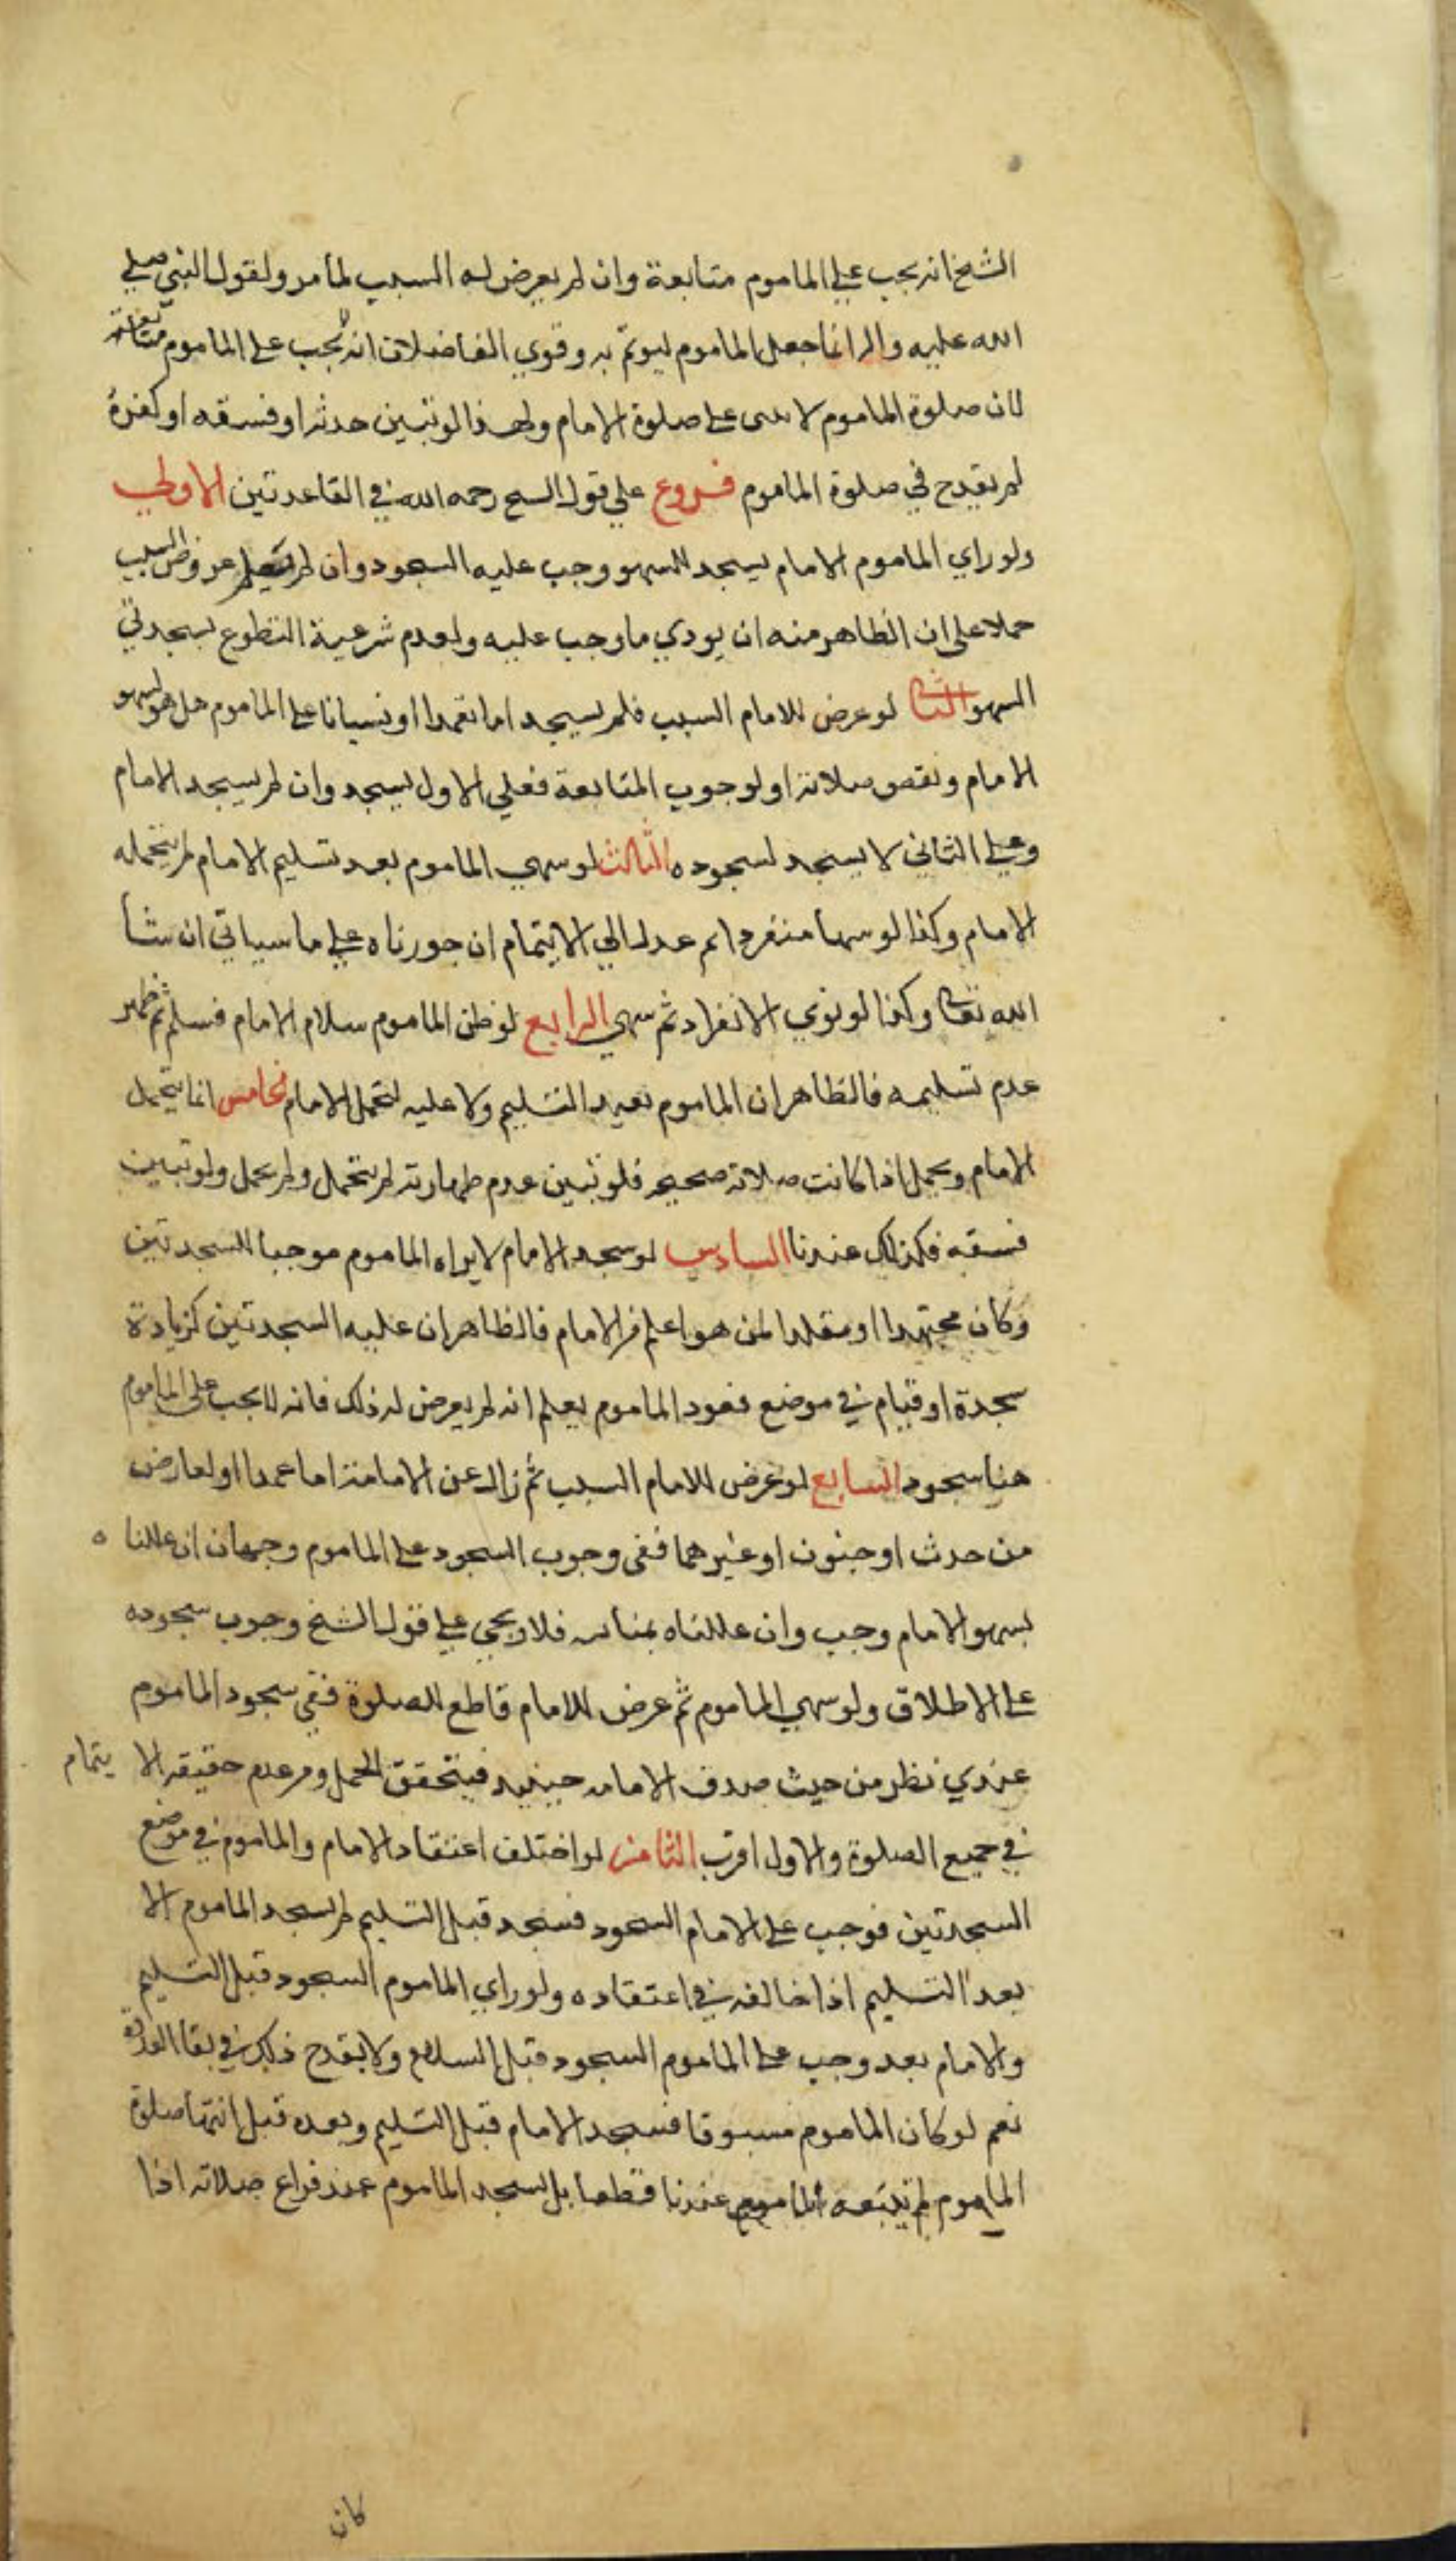 الشيخ انه يجب على الماموم متابعة وان لم يعرض له السبب لما مر ولقول النبي صلى
الله عليه واله انما جعل الماموم ليوتم به وقوي الفاضلان انه لا يجب على الماموم متابعته
لان صلوة الماموم لا تبنى على صلوة الامام ولهذا لو تبين حدثه او فسقه او كفره
لم يقدح في صلوة الماموم فروع على قول الشيخ رحمه الله في القاعدتين الاولى
ولو راي الماموم الامام يسجد للسهو وجب عليه السجود وان لم يعلم عروض السبب
حملا على ان الظاهر منه ان يودي ما وجب عليه ولعدم شرعية التطوع بسجدتي
السهو الثاني لو عرض للامام السبب فلم يسجد اما تعمدا او نسيانا على الماموم هل هو لسهو
الامام ونقص صلاته او لوجوب المتابعة فعلى الاول يسجد وان لم يسجد الامام
وعلى الثاني لا يسجد لسجوده الثالث لو سهى الماموم بعد تسليم الامام لم يتحمله
الامام وكذا لو سها منفردا ثم عدل الى الايتمام ان جوزناه على ما سياتي ان شا
الله تعالى وكذا لو نوي الانفراد ثم سهى الرابع لو ظن الماموم سلام الامام فسلم ثم ظهر
عدم تسليمه فالظاهر ان الماموم يعيد التسليم ولا عليه لتحمل الامام الخامس انما يتحمل
الامام ويحمل اذا كانت صلاته صحيحه فلو تبين عدم طهارته لم يتحمل ولم يحمل ولو تبين
فسقه فكذلك عندنا السادس لو سجد الامام لا يراه الماموم موجبا للسجدتين
وكان مجتهدا او مقلدا لمن هو اعلم من الامام فالظاهر ان عليه السجدتين كزيادة
سجدة او قيام في موضع قعود الماموم يعلم انه لم يعرض له ذلك فانه لا يجب على الماموم
هنا سجود السابع لو عرض للامام السبب ثم زال عن الامامة اما عمدا او لعارض
من حدث او جنون او غيرهما ففي وجوب السجود على الماموم وجهان ان عللنا ه
بسهو الامام وجب وان عللناه بمتابعته فلا ويجي على قول الشيخ وجوب سجوده
على الاطلاق ولو سهى الماموم ثم عرض للامام قاطع للصلوة ففي سجود الماموم
عندي نظر من حيث صدق الامامه حينيذ فيتحقق الحمل ومن عدم حقيقه الا يتمام
في جميع الصلوة والاول اقرب الثامن لو اختلف اعتقاد الامام والماموم في موضع
السجدتين فوجب على الامام السجود فسجد قبل التسليم لم يسجد الماموم الا
بعد التسليم اذا خالفه في اعتقاده ولو راي الماموم السجود قبل التسليم
والامام بعد وجب على الماموم السجود قبل السلام ولا يقدح ذلك في بقا القدوة
نعم لو كان الماموم مسبوقا فسجد الامام قبل التسليم وبعده قبل انتها صلوة
الماموم لم يتبعه الماموم عندنا قطعا بل يسجد الماموم عند فراغ صلاته اذا
كان